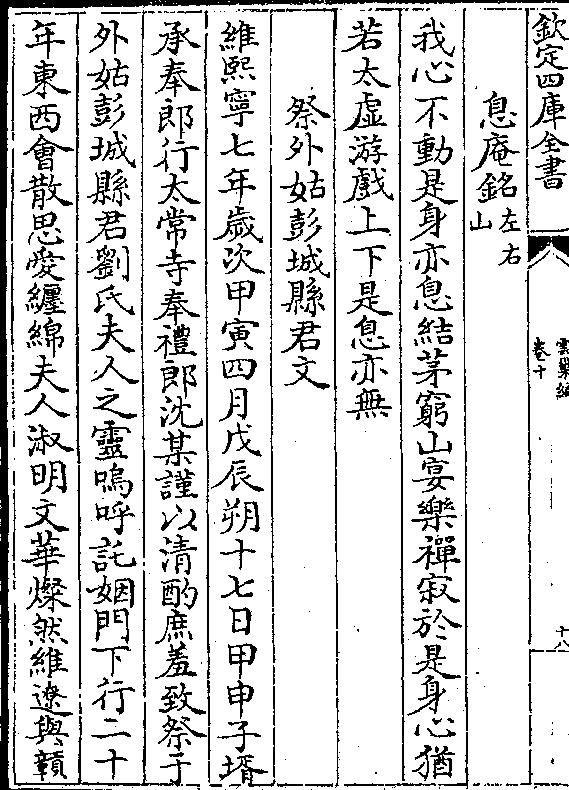 欽定四庫全書
雲巢編
卷十
十八
息庵銘左右山
我心不動是身亦息結茅窮山宴樂禪寂於是身心猶
若太虛游戲上下是息亦無
祭外姑彭城縣君文
維熙寧七年歲次甲寅四月戊辰朔十七日甲申子壻
承奉郎行太常寺奉禮郎沈某謹以清酌庶羞致祭于
外姑彭城縣君劉氏夫人之靈嗚呼託姻門下行二十
年東西會散思愛纏綿夫人淑明文華燦然維遼與韻